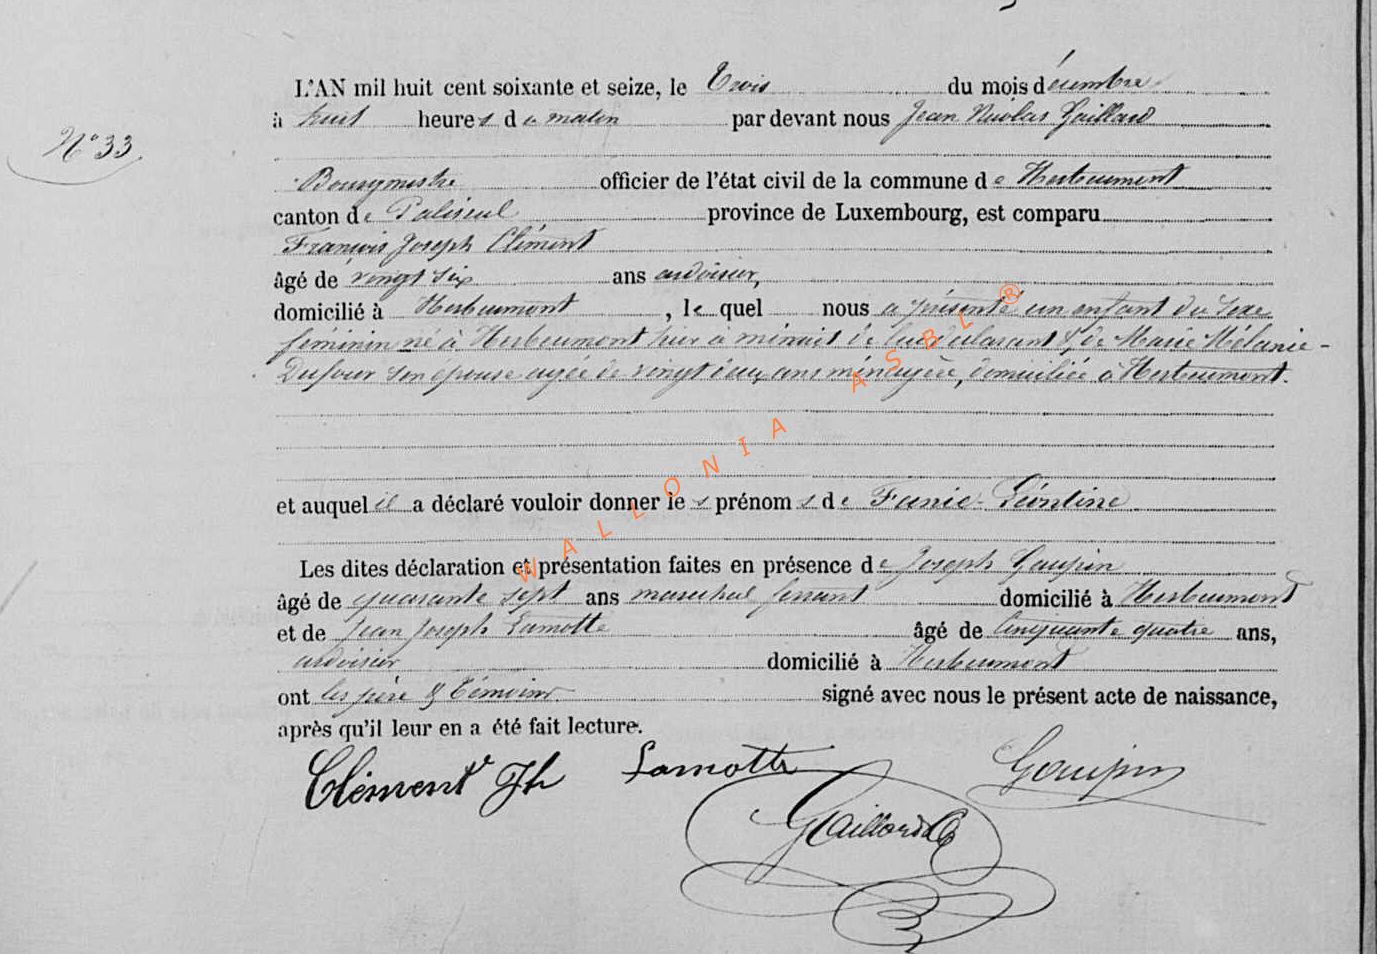 L'AN mil huit cent soixante et seize, le Trois du mois décembre
à huit heures du matin par devant nous Jean Nicolas Gaillard
N° 33
Bourgmestre officier de l'état civil de la commune de Herbeumont
canton de Paliseul province de Luxembourg, est comparu
François Joseph Clément
âgé de vingt six ans ardoisier,
domicilié à Herbeumont, le quel nous a présenté un enfant du sexe
féminin né à Herbeumont hier à minuit de lui déclarant & de Marie Mélanie
Dufour son épouse agée de vingt deux ans ménagère, domiciliée à Herbeumont.
et auquel il a déclaré vouloir donner les prénoms de Fanie Léontine
Les dites déclaration et présentation faites en présence de Joseph Goupin
âgé de quarante sept ans maréchal ferrant domicilié à Herbeumont
et de Jean Joseph Lamotte âgé de Cinquante quatre ans,
ardoisier domicilié à Herbeumont
ont les père & témoins signé avec nous le présent acte de naissance,
après qu'il leur en a été fait lecture.
Clément Jh Lamotte Goupin
Gaillard
WALLONIA ASBL ®